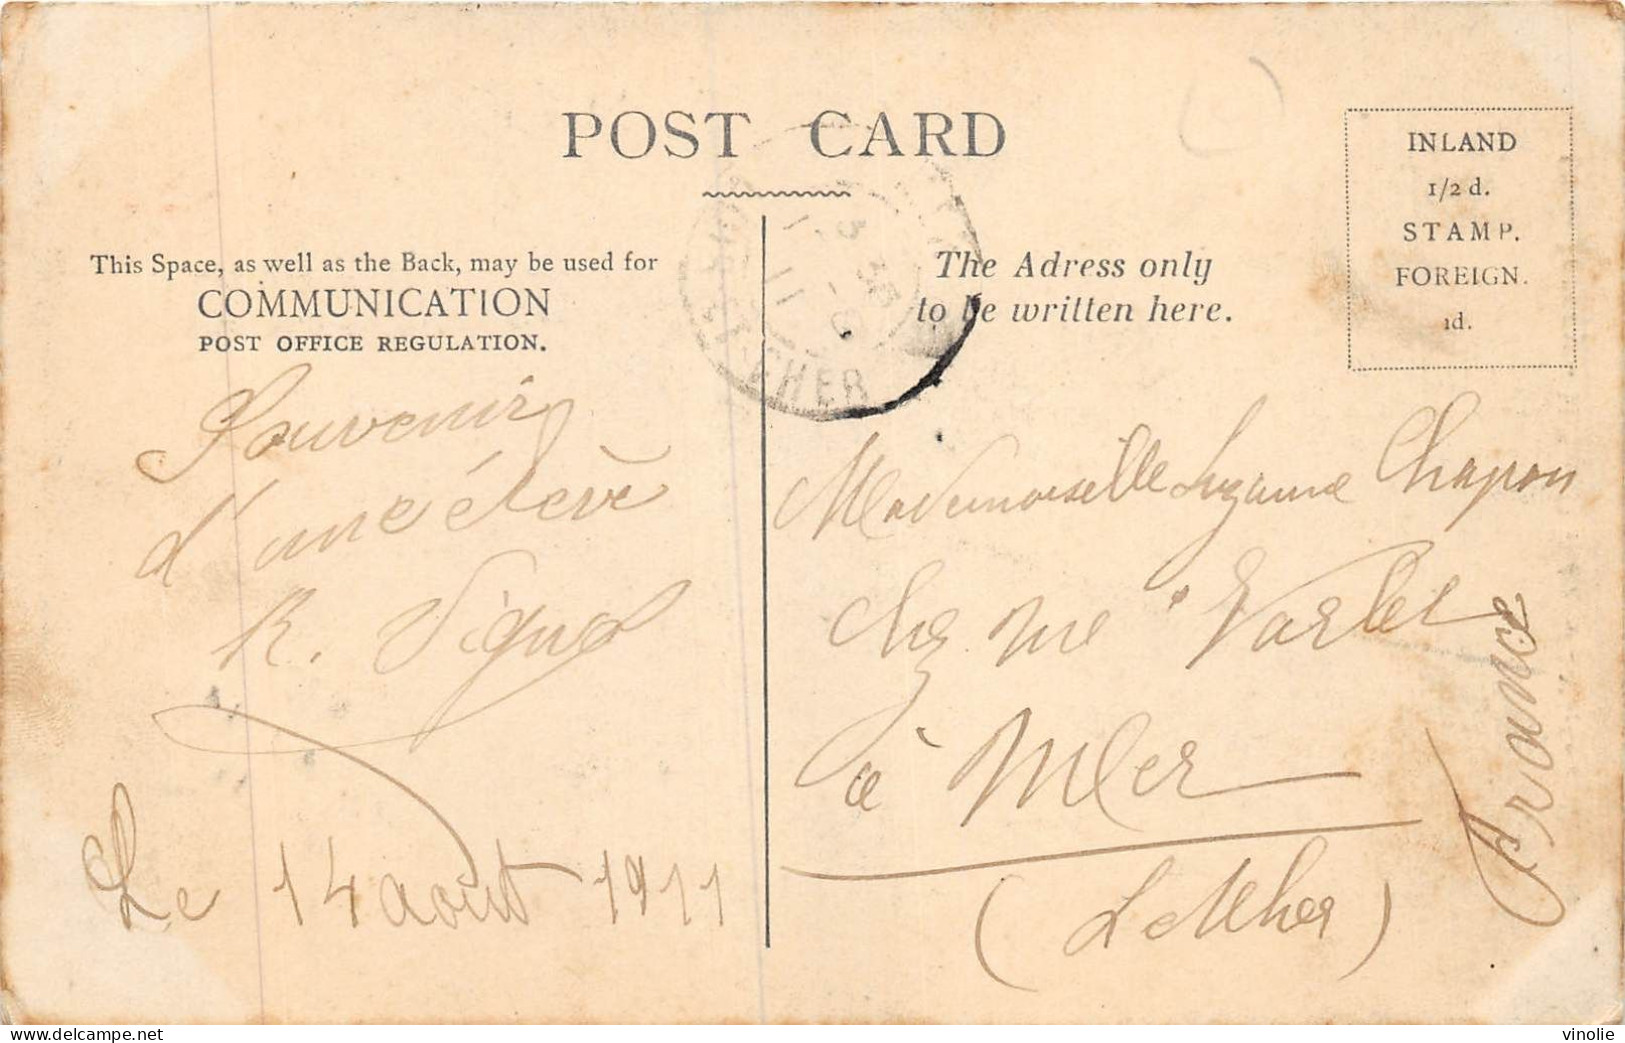 POST CARD
This Space, as well as the Back, may be used for
COMMUNICATION
POST OFFICE REGULATION.
The Adress only
to be written here.
INLAND
1/2 d.
STAMP.
FOREIGN.
1d.
CHER
Souvenir
d'une élève
R. Vigno
Le 14 août 1911
Mademoiselle Suzanne Chapon
chez Mme Varlet
à Mer
(L et Cher)
France
www.delcampe.net
vinolie